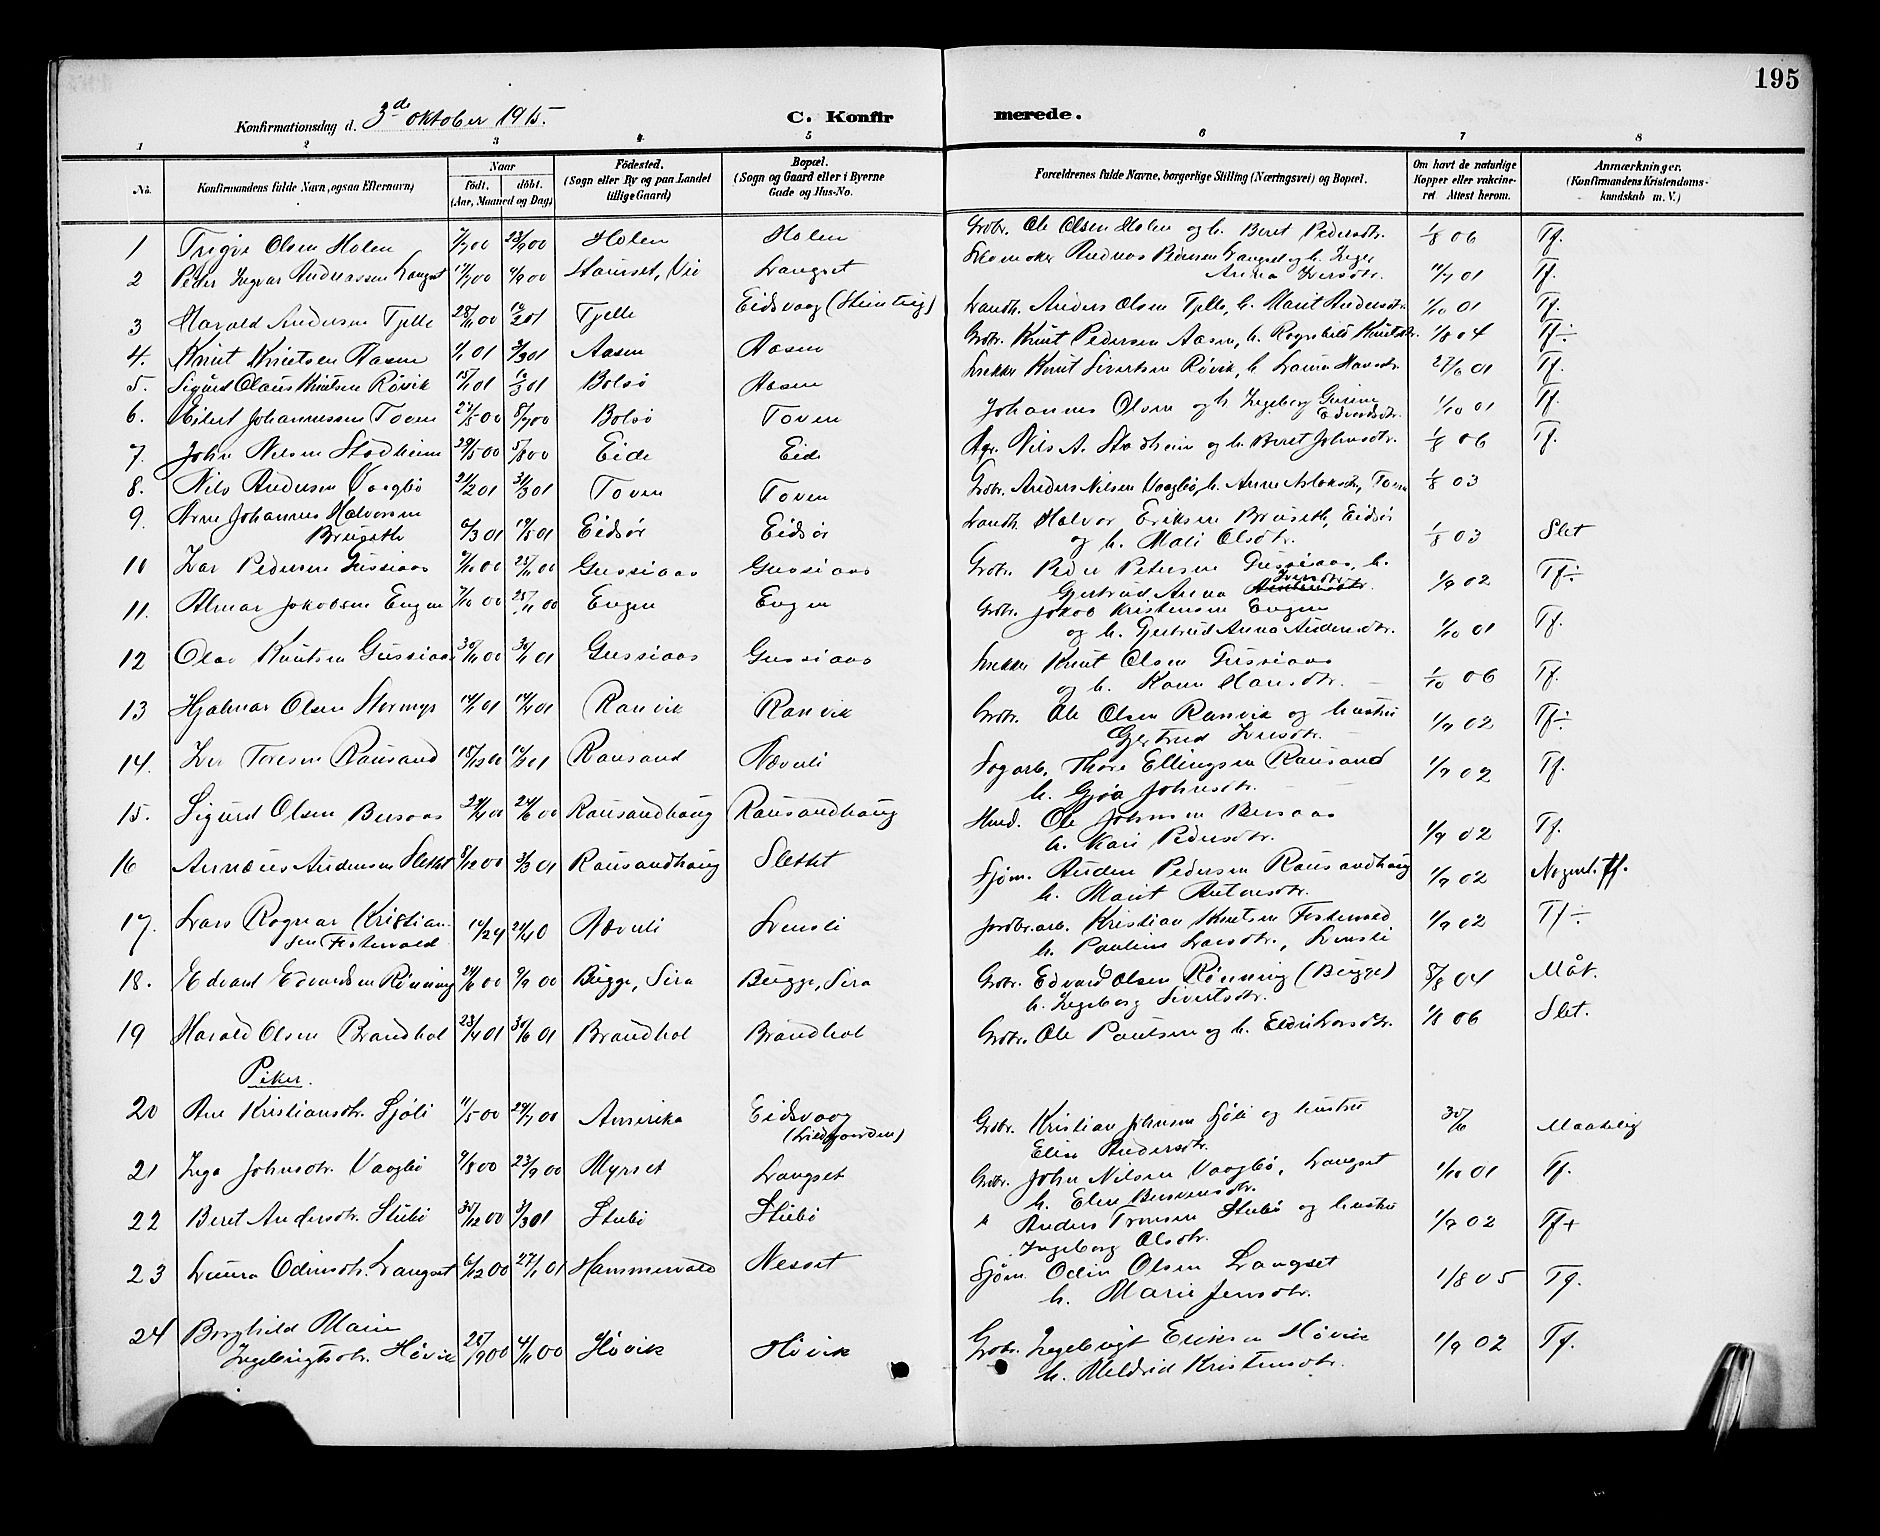 195
Konfirmationsdag d. 3de oktober 1915. C. Konfirmerede.
1 2 3 4 5 6 7 8
No. Konfirmandens fulde Navn, ogsaa Efternavn) Naar født, døbt. (Aar, Maaned og Dag) Fødested. (Sogn eller By og paa Landet tillige Gaard) Bopæl. (Sogn og Gaard eller i Byerne Gade og Hus-No. Forældrenes fulde Navne, borgerlige Stilling (Næringsvei) og Bopæl. Om havt de naturlige Kopper eller vakcineret Attest herom. Anmærkninger. (Konfirmandens Kristendomskundskab m. V.)
1 Trigve Olsen Holen 7/7 00 23/9 00 Holen Holen Grdbr. Ole Olsen Holen og h. Beret Pedersdtr. 1/8 06 Tf.
2 Peder Ingvar Andreassen Langset 17/7 00 9/9 00 Langset Langset og h. Inger
Anna Iversdtr. 11/7 01 Tf.
3 Harald Andersen Tjelle 28/11 00 Tjelle Eidsvaag Landh. Anders Olsen Tjelle, h. Marit Andersdtr. 1/10 01 Tf.
4. Knut Knutsen Aasen 1/1 01 3/3 01 Aasen Aasen Grdbr. Knut Pedersen Aasen, h. Ragnhild Knutsdtr. 1/8 04 Tf÷
5. Sigurd Olaus Knutsen Røvik 15/1 01 Bolsø Aasen Knut Sivertsen Røvik, h. Laura Hansdtr. 27/6 01 Tf.
6. Eilert Johannessen Toven 27/5 00 8/7 00 Bolsø Toven Johannes Olsen og h. Ingeborg Gurine
Edvardsdtr. 1/10 01 Tf.
7. John Nilsen Stadheim 29/5 00 5/8 00 Eide Eide Nils A. Stadheim og h. Beret Johnsdtr. 1/8 06 Tf.
8. Nils Andersen Vaagbø 21/2 01 31/3 01 Toven Toven Grdbr. Anders Nilsen Vaagbø, h. Anne Aslaksdtr, Toven 1/8 03
9. Arne Johannes Halvorsen
Bruseth 6/3 01 19/5 01 Eidsør Eidsør Landh. Halvor Eriksen Bruseth, Eidsør
og h. Mali Olsdtr. 1/8 03 Slet
10 Ivar Pedersen Gussiaas 9/10 00 25/11 00 Gussiaas Gussiaas Grdbr. Peder Petersen Gussiaas, h.
Gjertrud Anna Iversdtr. 1/9 02 Tf÷
11. Almar Jakobsen Engen 7/10 00 25/11 00 Engen Engen Grdbr. Jakob Kristensen Engen
og h. Gjertrud Anna Andersdtr. 1/10 01 Tf.
12 Olav Knutsen Gussiaas 30/11 00 Gussiaas Gussiaas Knut Olsen Gussiaas
og h. Karen Hansdtr. 1/10 06 Tf.
13 Hjalmar Olsen Stormyr 14/1 01 14/4 01 Ranvik Ranvik Grdbr. Ole Olsen Ranvik og hustru
Gjertrud Iversdtr. 1/9 02 Tf÷
14. Iver Toresen Rausand 18/12 00 Rausand Næverli Sagarb. Thore Ellingsen Rausand
h. Gjøa Johnsdtr. 1/9 02 Tf.
15. Sigurd Olsen Bersaas 29/4 00 24/6 00 Rausandhaug Rausandhaug Husd. Ole Johnsen Bersaas
h. Kari Pedersdtr. 1/9 02 Tf.
16 Annæus Andersen Slettet 8/12 00 3/3 01 Rausandhaug Slettet Sjøm. Anders Pedersen Rausandhaug
h. Marit Antonsdtr. 1/9 02 Nogenl. Tf.
17. Lars Ragnar Kristiansen
Fostervold Næverli Lensli Jordbr.arb. Kristian Knutsen Fostervold
h. Pauline Larsdtr., Lensli 1/9 02 Tf÷
18. Edvard Edvardsen Rønning 24/6 00 9/9 00 Bugge, Sira Bugge, Sira Grdbr. Edvard Olsen Rønning (Bugge)
h. Ingeborg Sivertsdtr. 8/8 04 Måt.
19 Harald Olsen Brandhol 23/4 01 30/6 01 Brandhol Brandhol Grdbr. Ole Paulsen og h. Eldri Larsdtr. 1/8 06 Slet.
Piker.
20 Ane Kristiansdtr. Sjøli 11/5 00 29/7 00 Amerika Eidsvaag Grdbr. Kristian Johnsen Sjøli og hustru
Elin Andersdtr. 30/6 Maadelig
21 Inga Johnsdtr. Vaagbø 9/8 00 23/9 00 Myrset Langset Grdbr. John Nilsen Vaagbø, Langset
h. Elen Bersvensdtr. 1/10 01 Tf.
22 Beret Andersdtr. Stubø 30/12 00 3/3 01 Stubø Stubø Anders Tronsen Stubø og hustru
Ingeborg Olsdtr. 1/9 02 Tf+
23 Laura Odinsdtr. Langset 6/12 00 27/1 01 Hammervold Nesset Sjøm. Odin Olsen Langset
h. Marie Jensdtr. 1/8 05 Tf.
24 Borghild Marie
Ingebrigtsdtr. Høvik 25/9 00 4/11 00 Høvik Høvik Grdbr. Ingebrigt Eriksen Høvik
h. Meldrid Kristensdtr. 1/9 02 Tf.